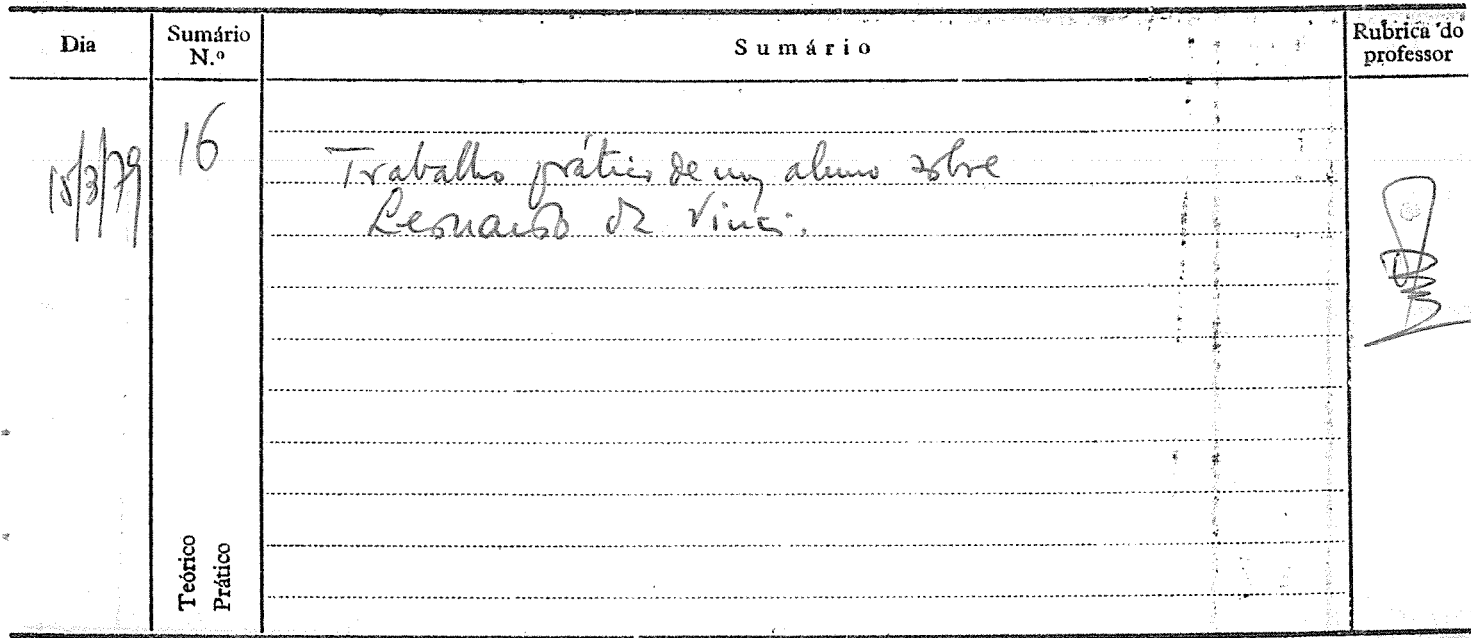 Dia
Sumário N.º
Sumário
Rubrica do professor
15/3/79
16
Trabalho prático de um aluno sobre
Leonardo da Vinci.
Teórico
Prático